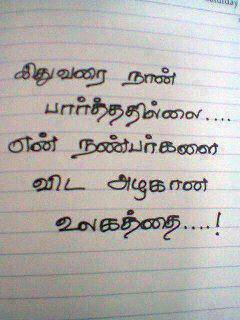 இதுவரை நான்
பார்த்ததில்லை....
என் நண்பர்களை
விட அழகான
உலகத்தை....!